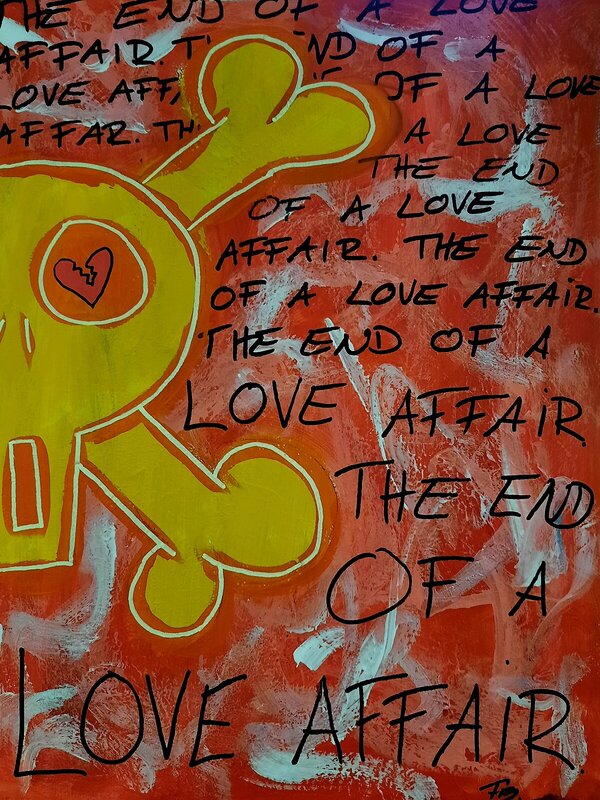 THE END OF A LOVE
AFFAIR. T' ND OF A
LOVE AFF, OF A LOVE
AFFAR. TH. A LOVE
THE END
OF A LOVE
AFFAIR. THE END
OF A LOVE AFFAIR.
THE END OF A
LOVE AFFAIR.
THE END
OF A
LOVE AFFAIR.